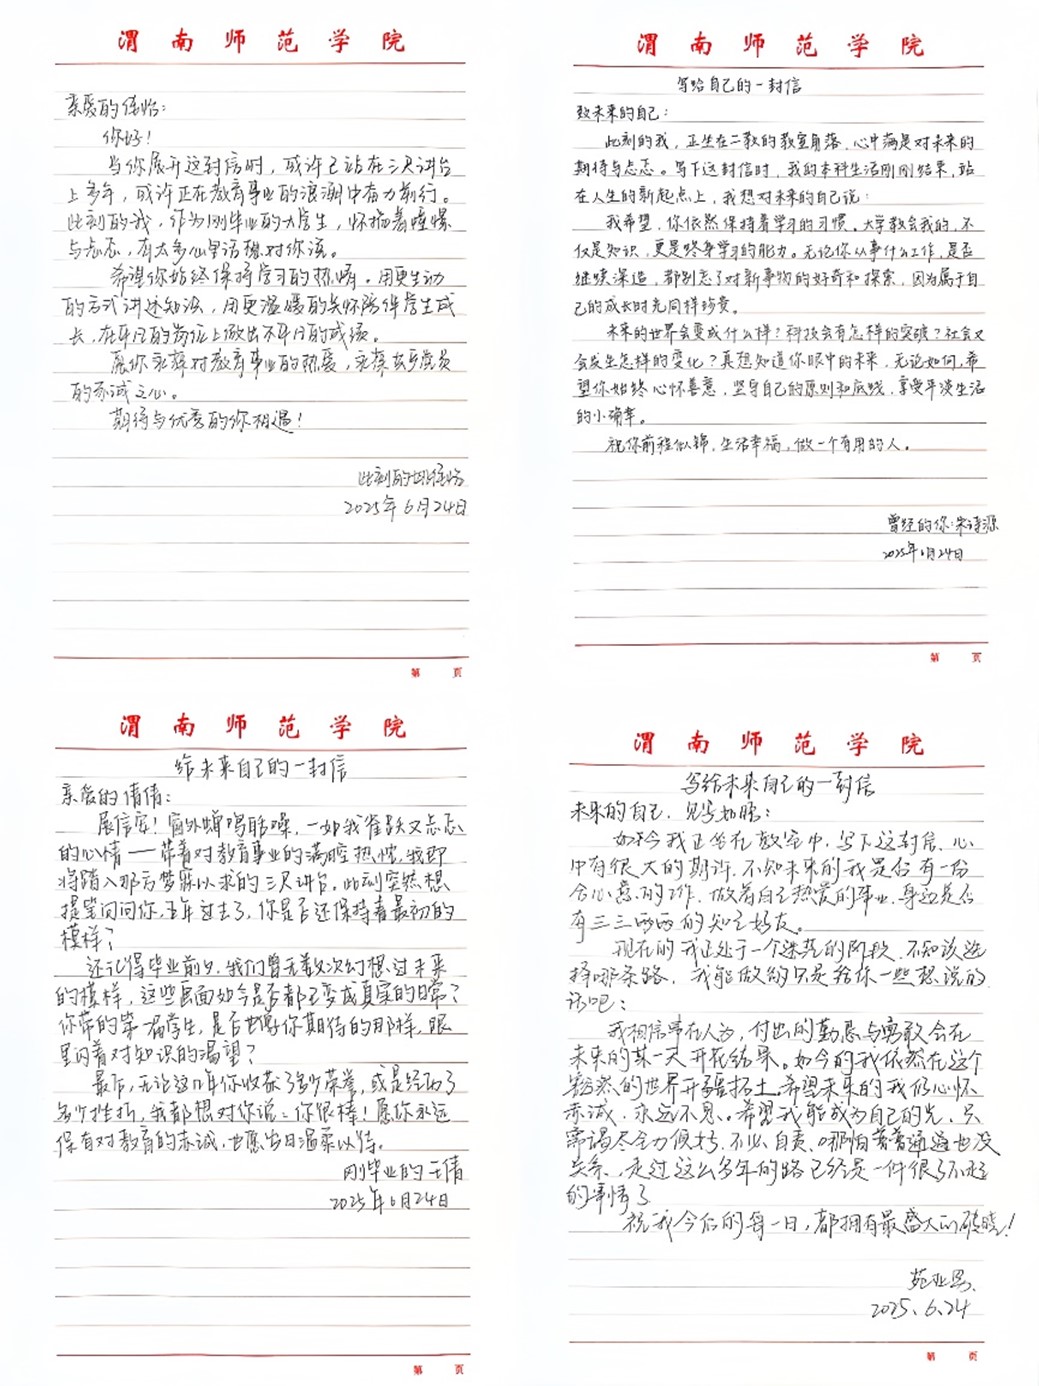 渭南师范学院
亲爱的佳怡：
你好！
当你展开这封信时，或许已站在三尺讲台
上多年，或许正在教育事业的浪潮中奋力前行。
此刻的我，作为刚毕业的大学生，怀揣着憧憬
与忐忑，有太多心里话想对你说。
希望你始终保持学习的热情。用更生动
的方式讲述知识，用更温暖的关怀陪伴学生成
长，在平凡的岗位上做出不平凡的成绩。
愿你永葆对教育事业的热爱，永葆共产党员
的赤诚之心。
期待与优秀的你相遇！
此刻的佳怡
2025年6月24日
第 页
渭南师范学院
写给自己的一封信
致未来的自己：
此刻的我，正坐在二教的教室角落，心中满是对未来的
期待与忐忑。写下这封信时，我的本科生活刚刚结束，站
在人生的新起点上，我想对未来的自己说：
我希望，你依然保持着学习的习惯。大学教会我的，不
仅是知识，更是终身学习的能力。无论你从事什么工作，是否
继续深造，都别忘了对新事物的好奇和探索，因为属于自
己的成长时光同样珍贵。
未来的世界会变成什么样？科技会有怎样的突破？社会又
会发生怎样的变化？真想知道你眼中的未来，无论如何，希
望你始终心怀善意，坚守自己的原则和底线，享受平淡生活
的小确幸。
祝你前程似锦，生活幸福，做一个有用的人。
曾经的你：宋诗源
2025年6月24日
第 页
渭南师范学院
给未来自己的一封信
亲爱的倩倩：
展信安！窗外蝉鸣聒噪，一如我雀跃又忐忑
的心情——带着对教育事业的满腔热忱，我即
将踏入那方梦寐以求的三尺讲台。此刻突然想
提笔问问你，五年过去了，你是否还保持着最初的
模样？
还记得毕业前夕，我们曾无数次幻想过未来
的模样，这些画面如今是否都已变成真实的日常？
你带的第一届学生，是否也像你期待的那样，眼
里闪着对知识的渴望？
最后，无论这几年你收获了多少荣誉，或是经历了
多少挫折，我都想对你说：你很棒！愿你永远
保有对教育的赤诚，也愿岁月温柔以待。
刚毕业的王倩
2025年6月24日
第 页
渭南师范学院
写给未来自己的一封信
未来的自己，见字如晤：
如今我正坐在教室中，写下这封信，心
中有很大的期许，不知未来的我是否有一份
合心意的工作，做着自己热爱的事业，身边是否
有三三两两的知己好友。
现在的我正处于一个迷茫的阶段，不知该选
择哪条路，我能做的只是给你一些想说的
话吧：
我相信事在人为，付出的勤恳与勇敢会在
未来的某一天开花结果。如今的我依然在这个
豁然的世界开疆拓土。希望未来的我仍心怀
赤诚，永远不息。希望我能成为自己的光，只
需竭尽全力便好，不必自责，哪怕普普通通也没
关系，走过这么多年的路已经是一件很了不起
的事情了
祝我今后的每一日，都拥有最盛大的破晓！
2025.6.24
第 页